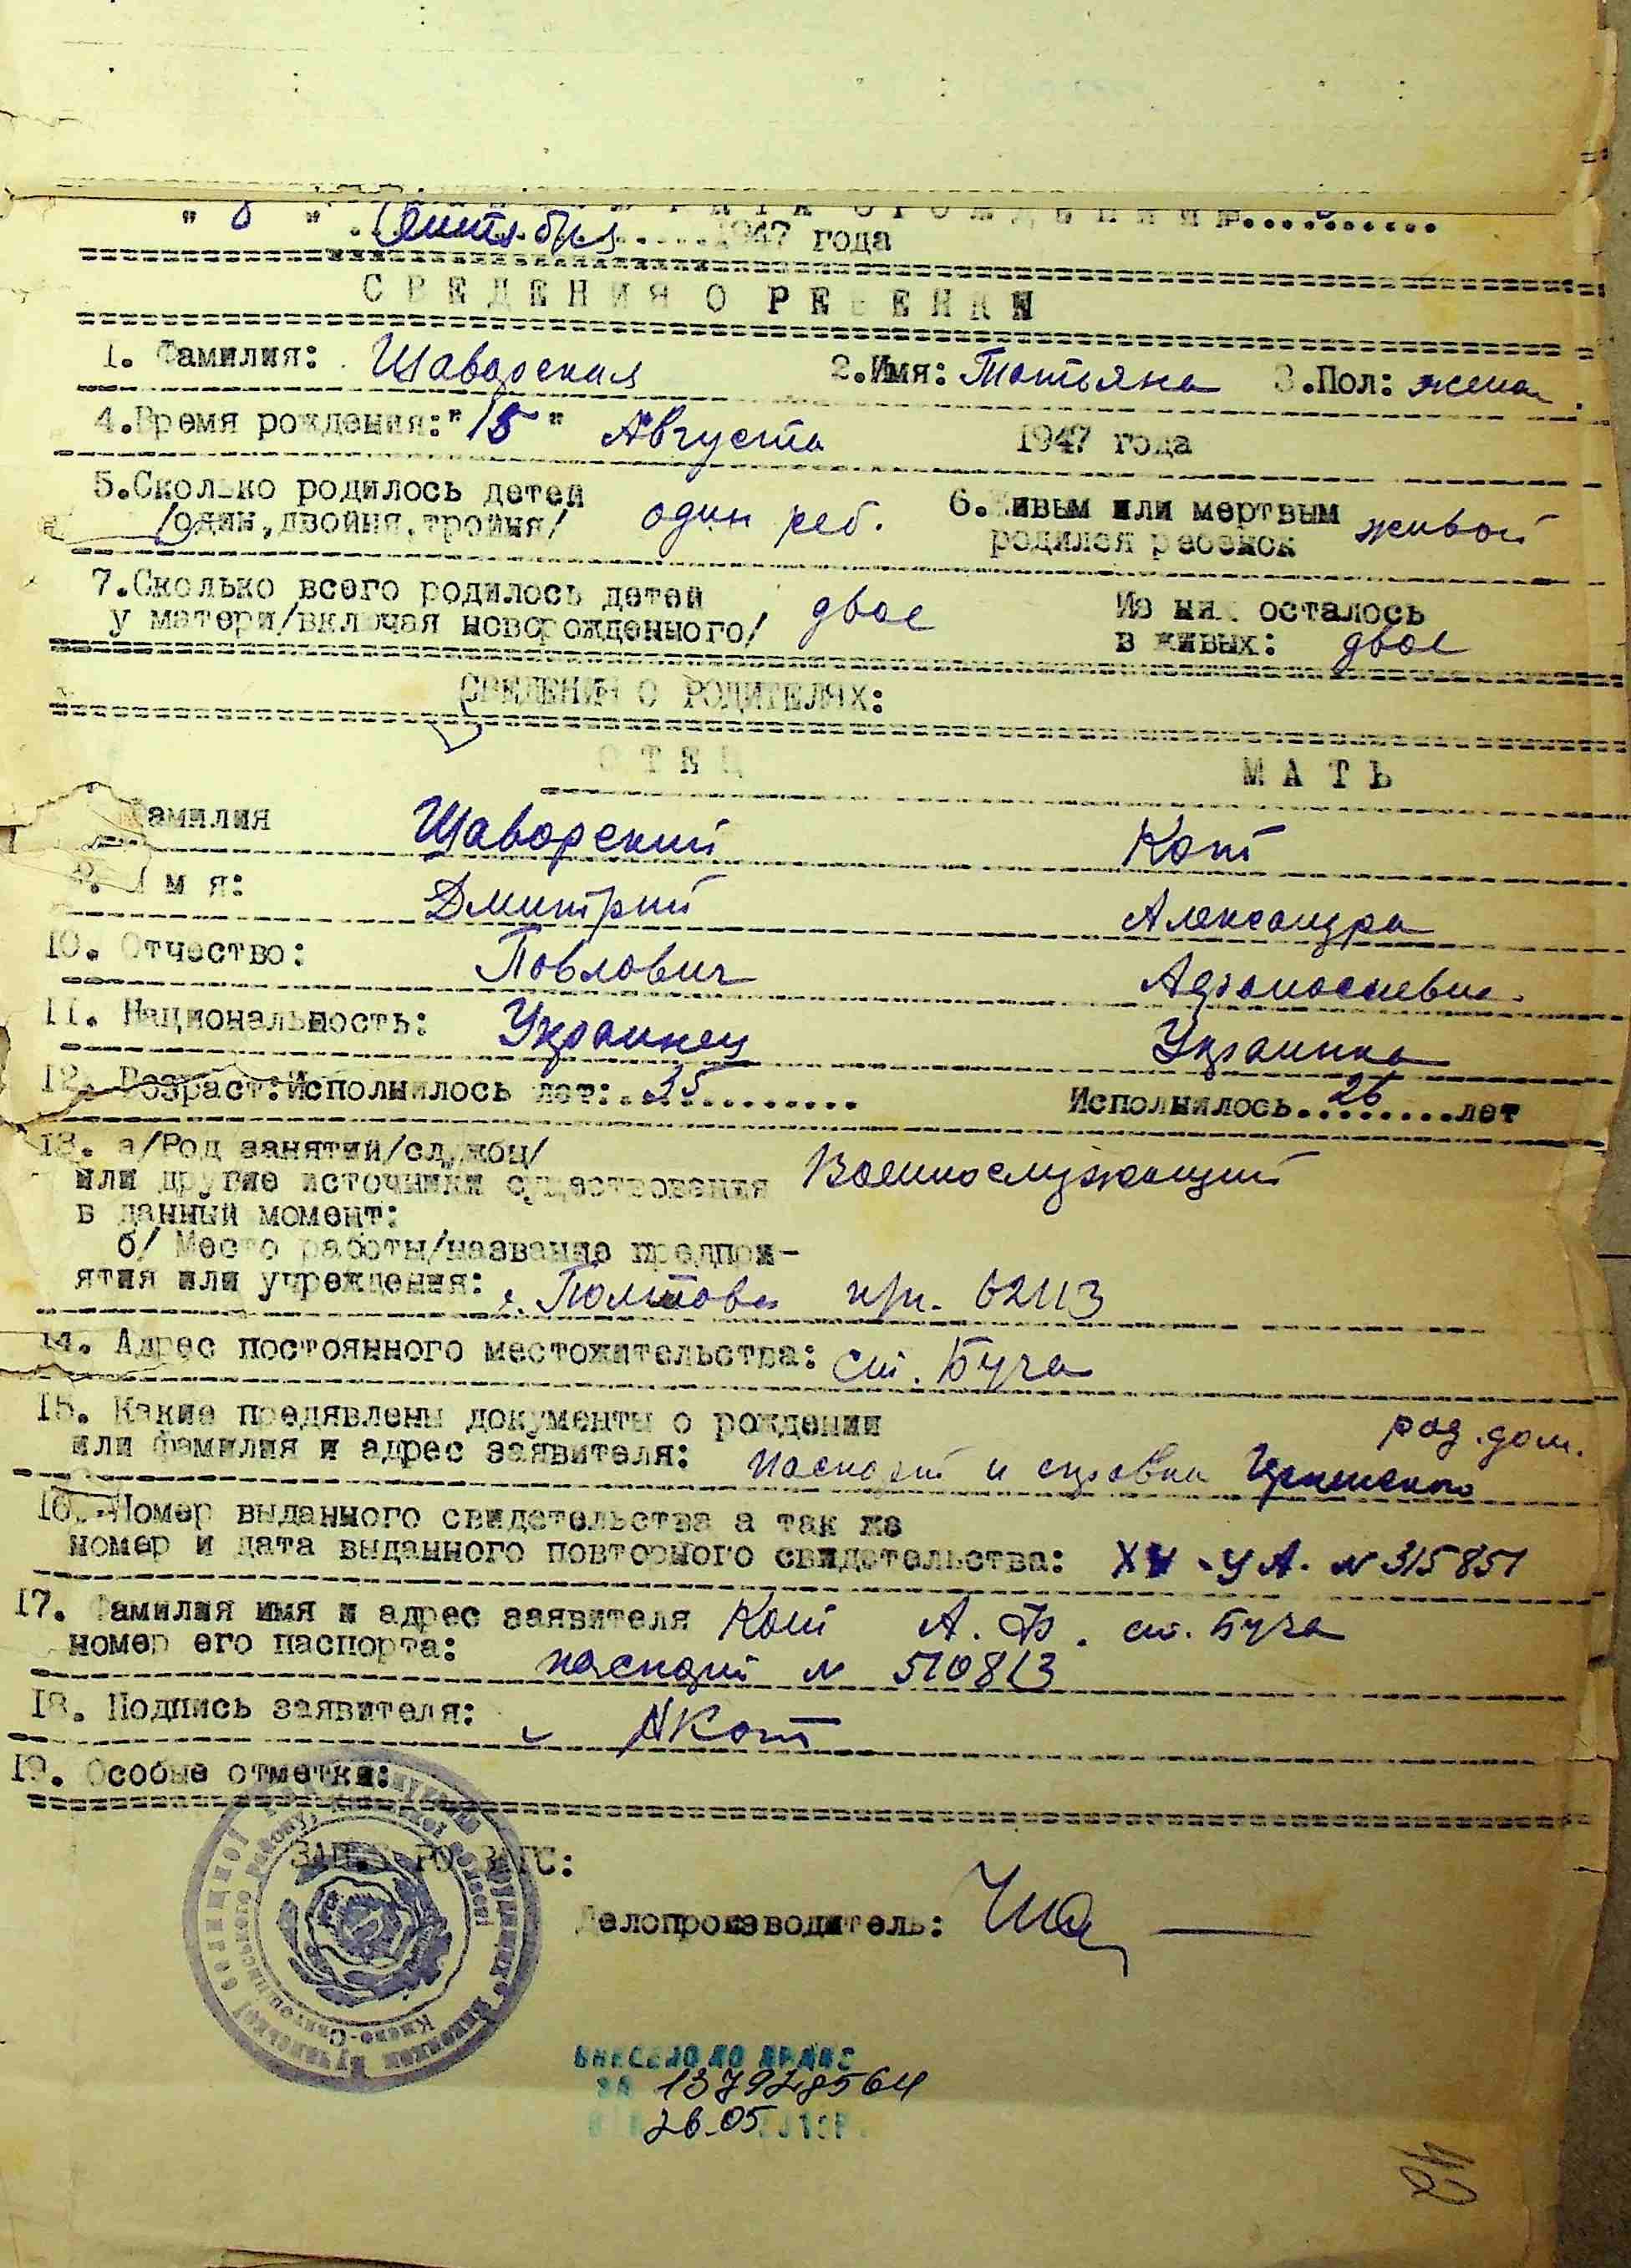 " 6 " Сентября 1947 года
СВЕДЕНИЯ О РЕБЕНКЕ
1. Фамилия: Щаворская 2.Имя: Татьяна 3.Пол: жена
4.Время рождения:"15" Августа 1947 года
5.Сколько родилось детей
/один,двойня,тройня/ один реб.
6.Живым или мертвым
родился ребенок живой
7.Сколько всего родилось детей
у матери/включая новорожденного/ двое
Из них осталось
в живых: двое
СВЕДЕНИЯ О РОДИТЕЛЯХ:
ОТЕЦ МАТЬ
Фамилия Щаворский Кот
9. Имя: Дмитрий Александра
10. Отчество: Павлович
11. Национальность: Украинец Украинка
12. Возраст:Исполнилось лет: Исполнилось 26 лет
13. а/Род занятий/службы/
или другие источники существования Военнослужащий
в данный момент:
б/ Место работы/название предпри-
ятия или учреждения: г. Полтова
14. Адрес постоянного местожительства: ст. Буча
15. Какие предявлены документы о рождении род. дом.
или фамилия и адрес заявителя: паспорт и справка Ирпинского
16. Номер выданного свидетельства а так же
номер и дата выданного повторного свидетельства: УА. № 315851
17. Фамилия имя и адрес заявителя Кот А. ст. Буча
номер его паспорта: паспорт № 510813
18. Подпись заявителя: АКот
19. Особые отметки:
ЗАГС:
Делопроизводитель:
ВНЕСЕНО ДО ДРАЦС
ЗА 137928564
26.05
42